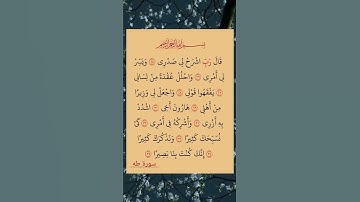 بسم الله الرحمن الرحيم
قَالَ رَبِّ اشْرَحْ لِي صَدْرِي ۝ وَيَسِّرْ
لِي أَمْرِي ۝ وَاحْلُلْ عُقْدَةً مِّن لِّسَانِي
۝ يَفْقَهُوا قَوْلِي ۝ وَاجْعَل لِّي وَزِيرًا
مِّنْ أَهْلِي ۝ هَارُونَ أَخِي ۝ اشْدُدْ
بِهِ أَزْرِي ۝ وَأَشْرِكْهُ فِي أَمْرِي ۝ كَيْ
نُسَبِّحَكَ كَثِيرًا ۝ وَنَذْكُرَكَ كَثِيرًا
۝ إِنَّكَ كُنتَ بِنَا بَصِيرًا ۝
سورة طه